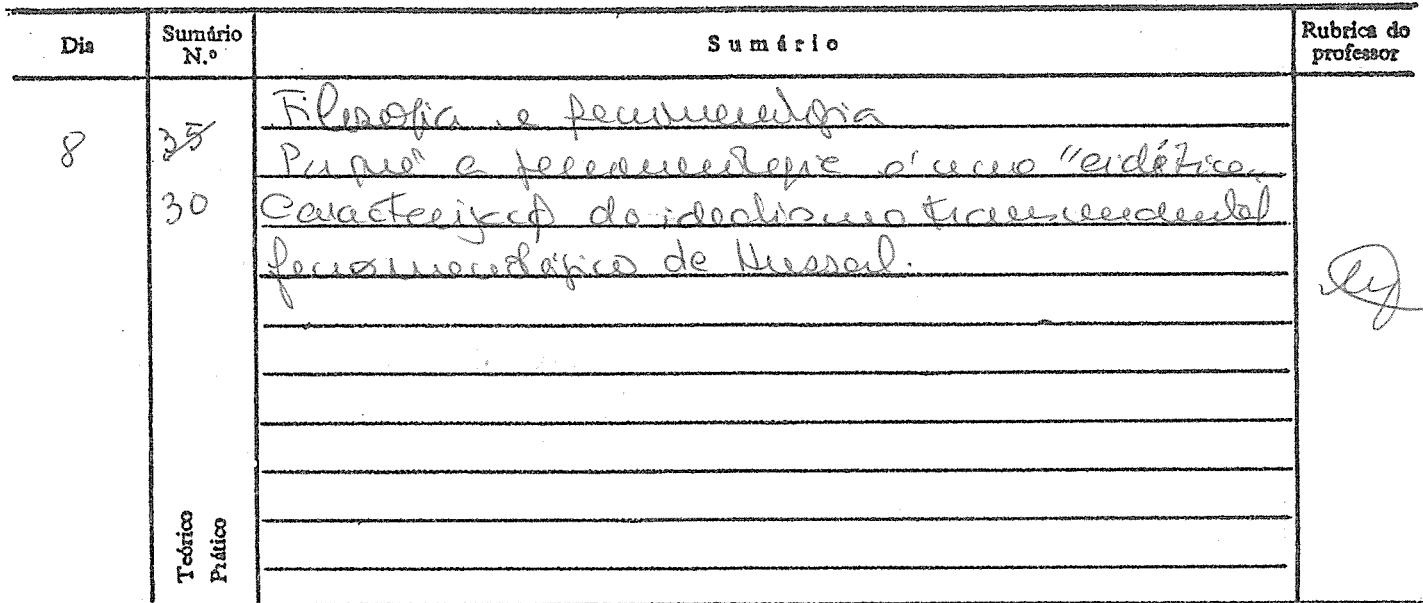 Dia
Sumário N.º
Sumário
Rubrica do professor
8
35
30
Filosofia e fenomenologia
Porquê a fenomenologia é uma "eidética"
Caracterização do idealismo transcendental
fenomenológico de Husserl.
Teórico
Prático